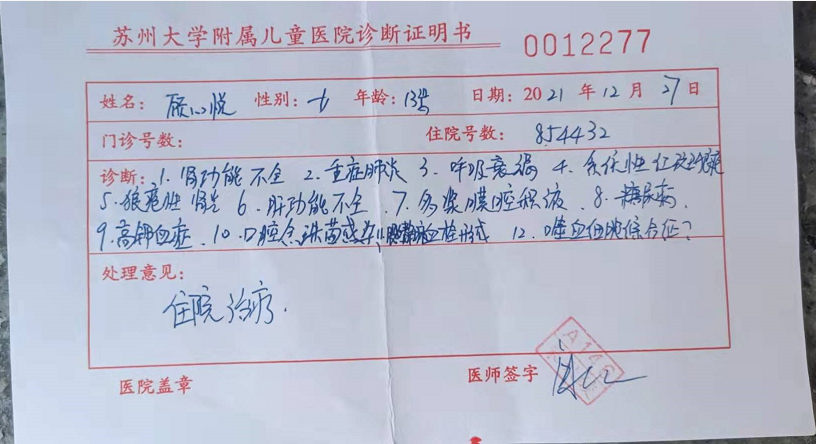 苏州大学附属儿童医院诊断证明书 0012277
姓名: 顾心悦 性别: 女 年龄: 13岁 日期: 2021 年 12 月 27 日
门诊号数: 住院号数: 854432
诊断: 1. 肾功能不全 2. 重症肺炎 3. 呼吸衰竭 4. 系统性红斑狼疮
5. 狼疮性肾炎 6. 肝功能不全 7. 多浆膜腔积液 8. 糖尿病
9. 高钾血症 10. 口腔念珠菌感染 11. 血栓形成 12. 噬血细胞综合征?
处理意见:
住院治疗.
医院盖章 医师签字
A146